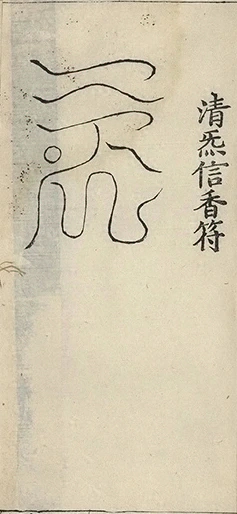 清炁信香符